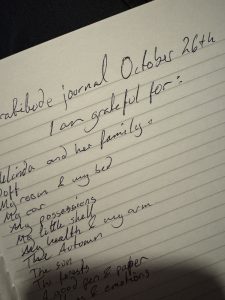 journal October 26th
I am grateful for:
and her family.
My room & my bed
My car
My possessions
My little shelf
My health & my arm
The Autumn
The sun
The forests
good pen & paper
& emotions